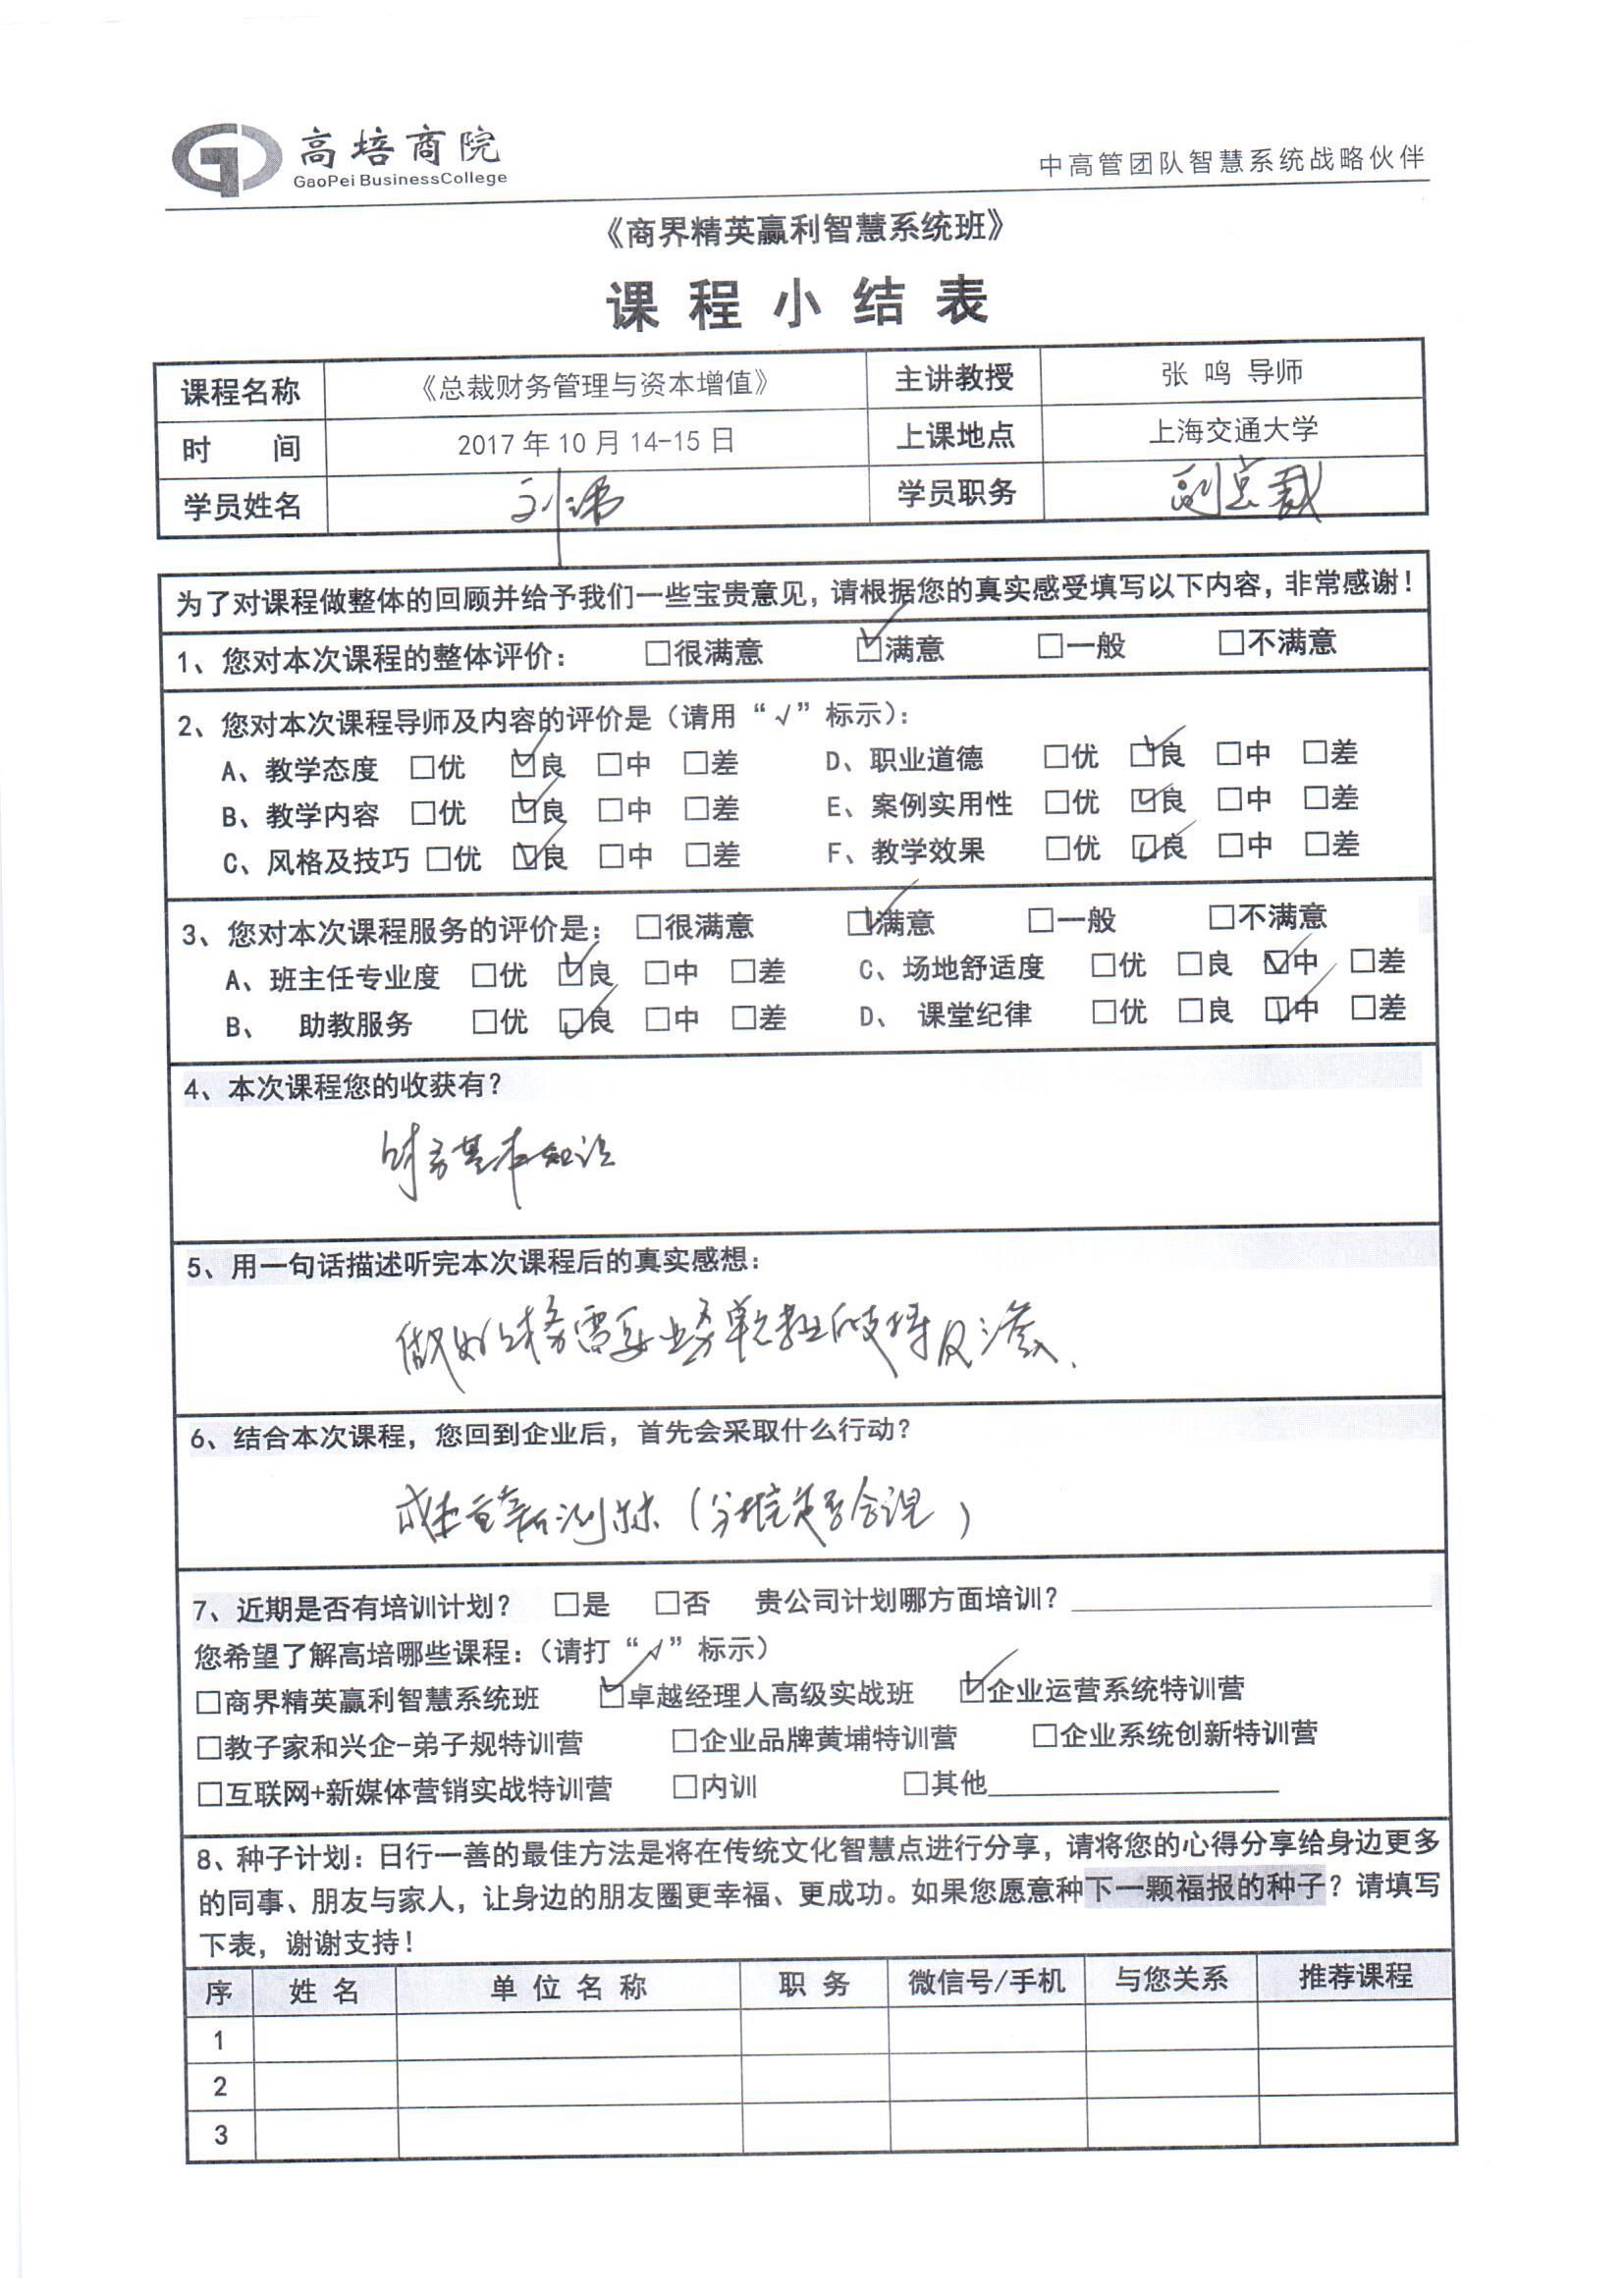 高培商院
GaoPei BusinessCollege
中高管团队智慧系统战略伙伴
《商界精英赢利智慧系统班》
课程小结表
课程名称 《总裁财务管理与资本增值》 主讲教授 张 鸣 导师
时 间 2017 年 10 月 14-15 日 上课地点 上海交通大学
学员姓名 刘 学员职务 副总裁
为了对课程做整体的回顾并给予我们一些宝贵意见，请根据您的真实感受填写以下内容，非常感谢！
1、您对本次课程的整体评价： □很满意 ☑满意 □一般 □不满意
2、您对本次课程导师及内容的评价是（请用“√”标示）：
A、教学态度 □优 ☑良 □中 □差 D、职业道德 □优 ☑良 □中 □差
B、教学内容 □优 ☑良 □中 □差 E、案例实用性 □优 ☑良 □中 □差
C、风格及技巧 □优 ☑良 □中 □差 F、教学效果 □优 ☑良 □中 □差
3、您对本次课程服务的评价是： □很满意 ☑满意 □一般 □不满意
A、班主任专业度 □优 ☑良 □中 □差 C、场地舒适度 □优 □良 ☑中 □差
B、 助教服务 □优 ☑良 □中 □差 D、 课堂纪律 □优 □良 ☑中 □差
4、本次课程您的收获有？
财务基本知识
5、用一句话描述听完本次课程后的真实感想：
做好财务需要业务单元
6、结合本次课程，您回到企业后，首先会采取什么行动？
成本重新测（分摊是否合理）
7、近期是否有培训计划？ □是 □否 贵公司计划哪方面培训？
您希望了解高培哪些课程：（请打“√”标示）
□商界精英赢利智慧系统班 ☑卓越经理人高级实战班 ☑企业运营系统特训营
□教子家和兴企-弟子规特训营 □企业品牌黄埔特训营 □企业系统创新特训营
□互联网+新媒体营销实战特训营 □内训 □其他
8、种子计划：日行一善的最佳方法是将在传统文化智慧点进行分享，请将您的心得分享给身边更多
的同事、朋友与家人，让身边的朋友圈更幸福、更成功。如果您愿意种下一颗福报的种子？请填写
下表，谢谢支持！
序 姓 名 单 位 名 称 职 务 微信号/手机 与您关系 推荐课程
1
2
3